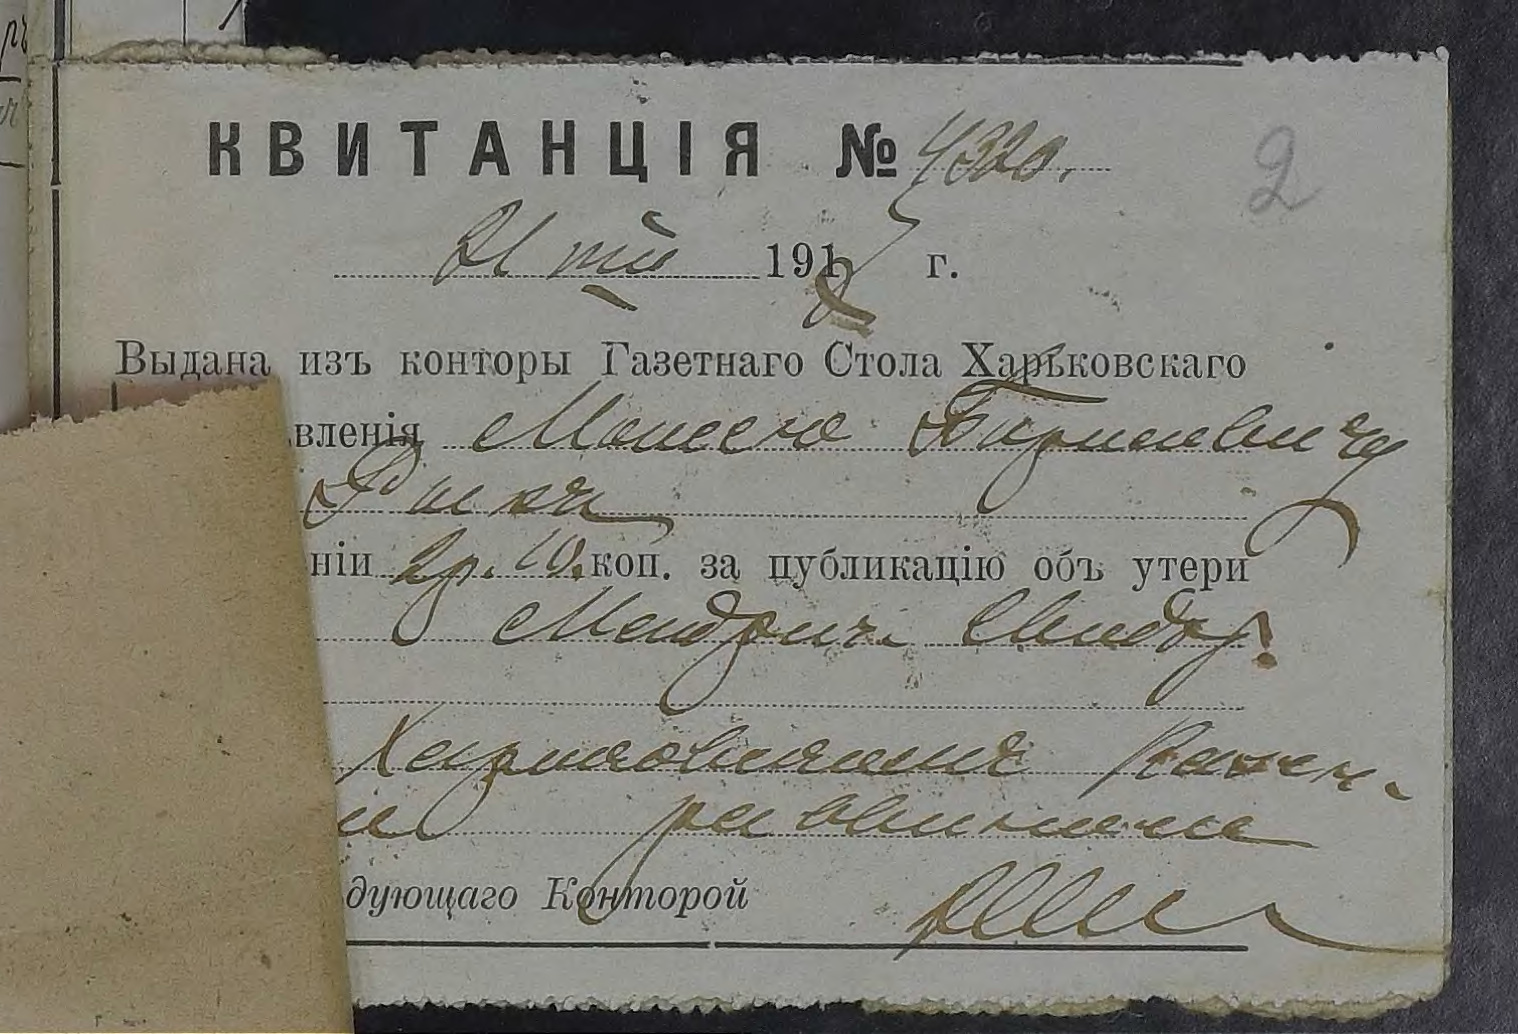 КВИТАНЦІЯ № 4320.
2
21 191 г.
Выдана изъ конторы Газетнаго Стола Харьковскаго
вленія Моисею Борисовичу
ніи 2р. 10. коп. за публикацію объ утери
Метрич. Свидѣт.
Харьковскимъ Казен.
раввиномъ
дующаго Конторой